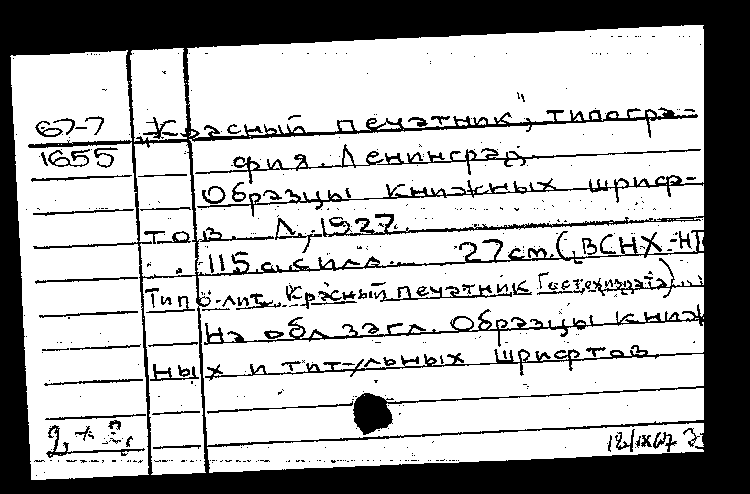 67-7 „Красный печатник", типогра-
1655 фия. Ленинград.
Образцы книжных шриф-
тов. Л., 1927.
115 с. с илл. 27 см. (ВСНХ - НТ
Типо-лит. „Красный печатник Гостехиздата)
На обл. загл. Образцы книж
ных и титульных шрифтов.
2, + 2,